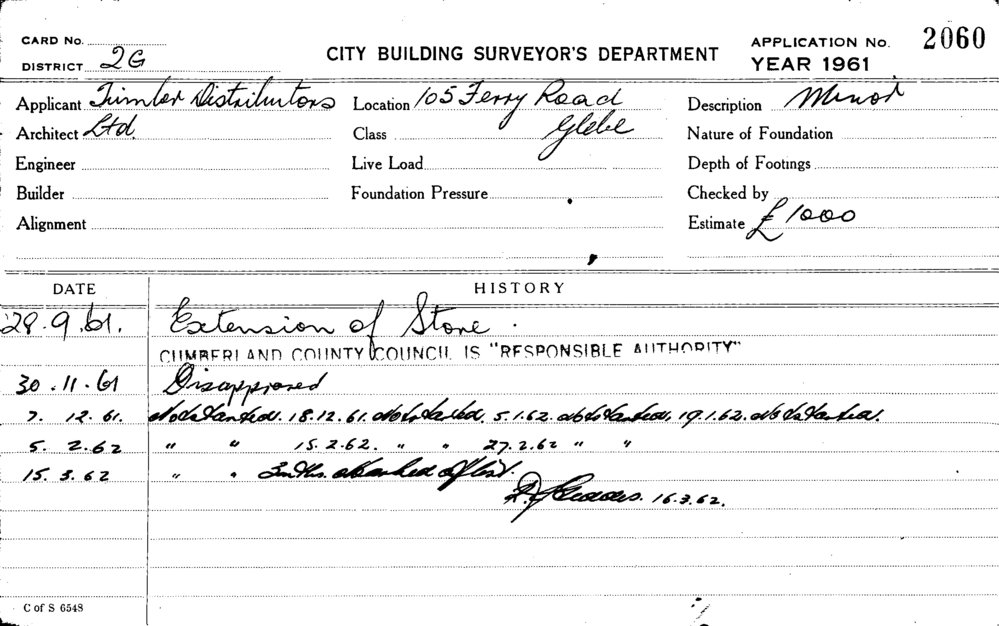 CARD No.
DISTRICT 2G
CITY BUILDING SURVEYOR'S DEPARTMENT
APPLICATION No. 2060
YEAR 1961
Applicant Timber Distributors Location 105 Ferry Road Description Minor
Architect Ltd. Class Glebe Nature of Foundation
Engineer Live Load Depth of Footings
Builder Foundation Pressure Checked by
Alignment Estimate £1000
DATE HISTORY
28.9.61. Extension of Store.
CUMBERLAND COUNTY COUNCIL IS "RESPONSIBLE AUTHORITY"
30.11.61 Disapproved
7. 12.61. Not started. 18.12.61. Not started. 5.1.62. Not started. 19.1.62. Not started.
5. 2.62 " " 15.2.62. " " 27.2.62 " "
15.3.62 " " marked off list.
16.3.62.
C of S 6548